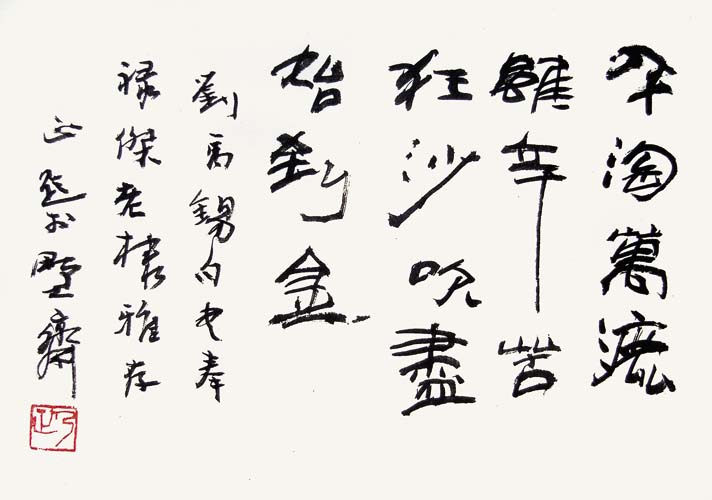 千淘萬漉
雖辛苦
狂沙吹盡
始到金
劉禹錫句書奉
祿傑老棣雅存
於墅齋